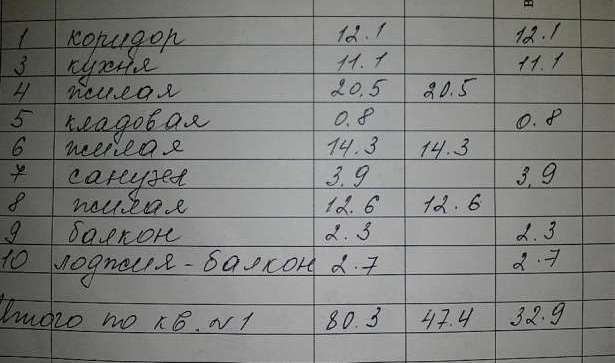 1 коридор 12.1 12.1
3 кухня 11.1 11.1
4 жилая 20.5 20.5
5 кладовая 0.8 0.8
6 жилая 14.3 14.3
7 санузел 3,9 3,9
8 жилая 12.6 12.6
9 балкон 2.3 2.3
10 лоджия-балкон 2.7 2.7
Итого по кв. №1 80.3 47.4 32.9